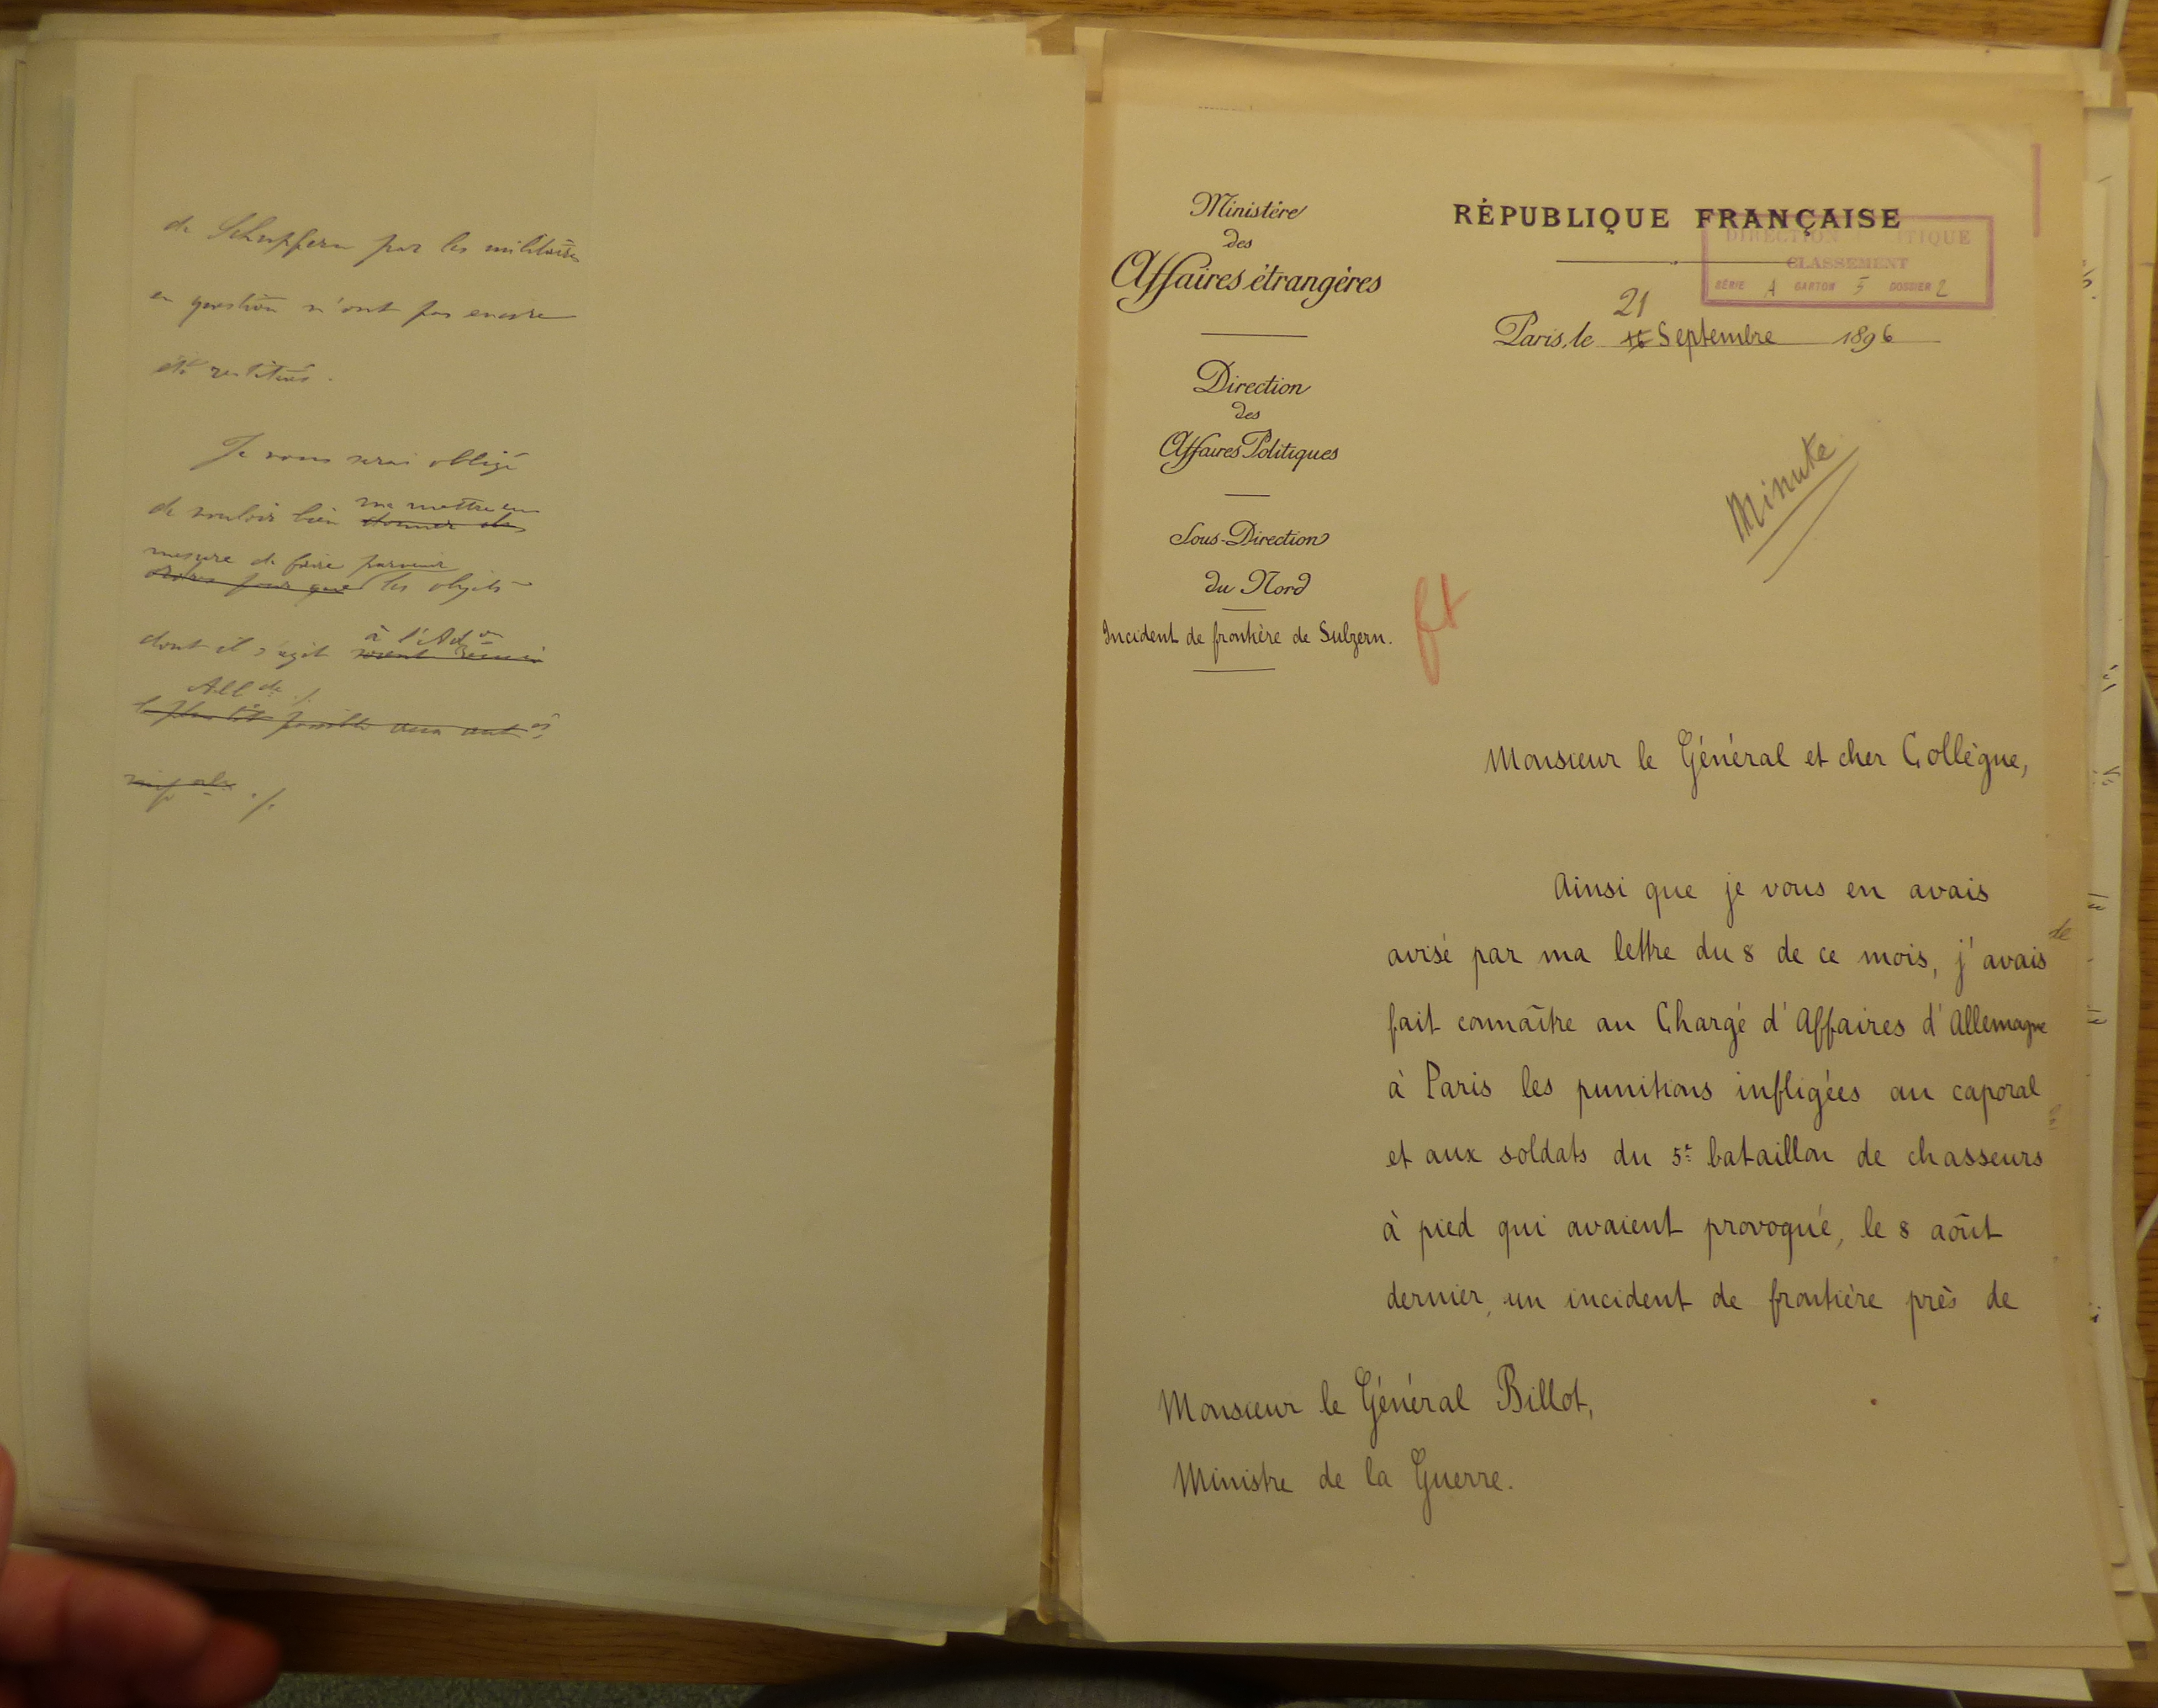 de Schupferen par les militaires
en question n'ont pas encore
été restitués.
Je vous serai obligé
de vouloir bien me mettre en
donner des
mesure de faire parvenir
ordres pour que les objets
dont il s'agit à l'Ad.on
soient
All de ./.
le plus tôt possible aux aut.és
./.
Ministère
des
Affaires étrangères
Direction
des
Affaires Politiques
Sous-Direction
du Nord
Incident de frontière de Sulzern.
RÉPUBLIQUE FRANÇAISE
DIRECTION ITIQUE
CLASSEMENT
SÉRIE A CARTON 5 DOSSIER 2
21
Paris, le Septembre 1896
Minute
Monsieur le Général et cher Collègue,
Ainsi que je vous en avais
avisé par ma lettre du 8 de ce mois, j'avais
fait connaître au Chargé d'Affaires d'Allemagne
à Paris les punitions infligées au caporal
et aux soldats du 5e bataillon de chasseurs
à pied qui avaient provoqué, le 8 août
dernier, un incident de frontière près de
Monsieur le Général Billot,
Ministre de la Guerre.